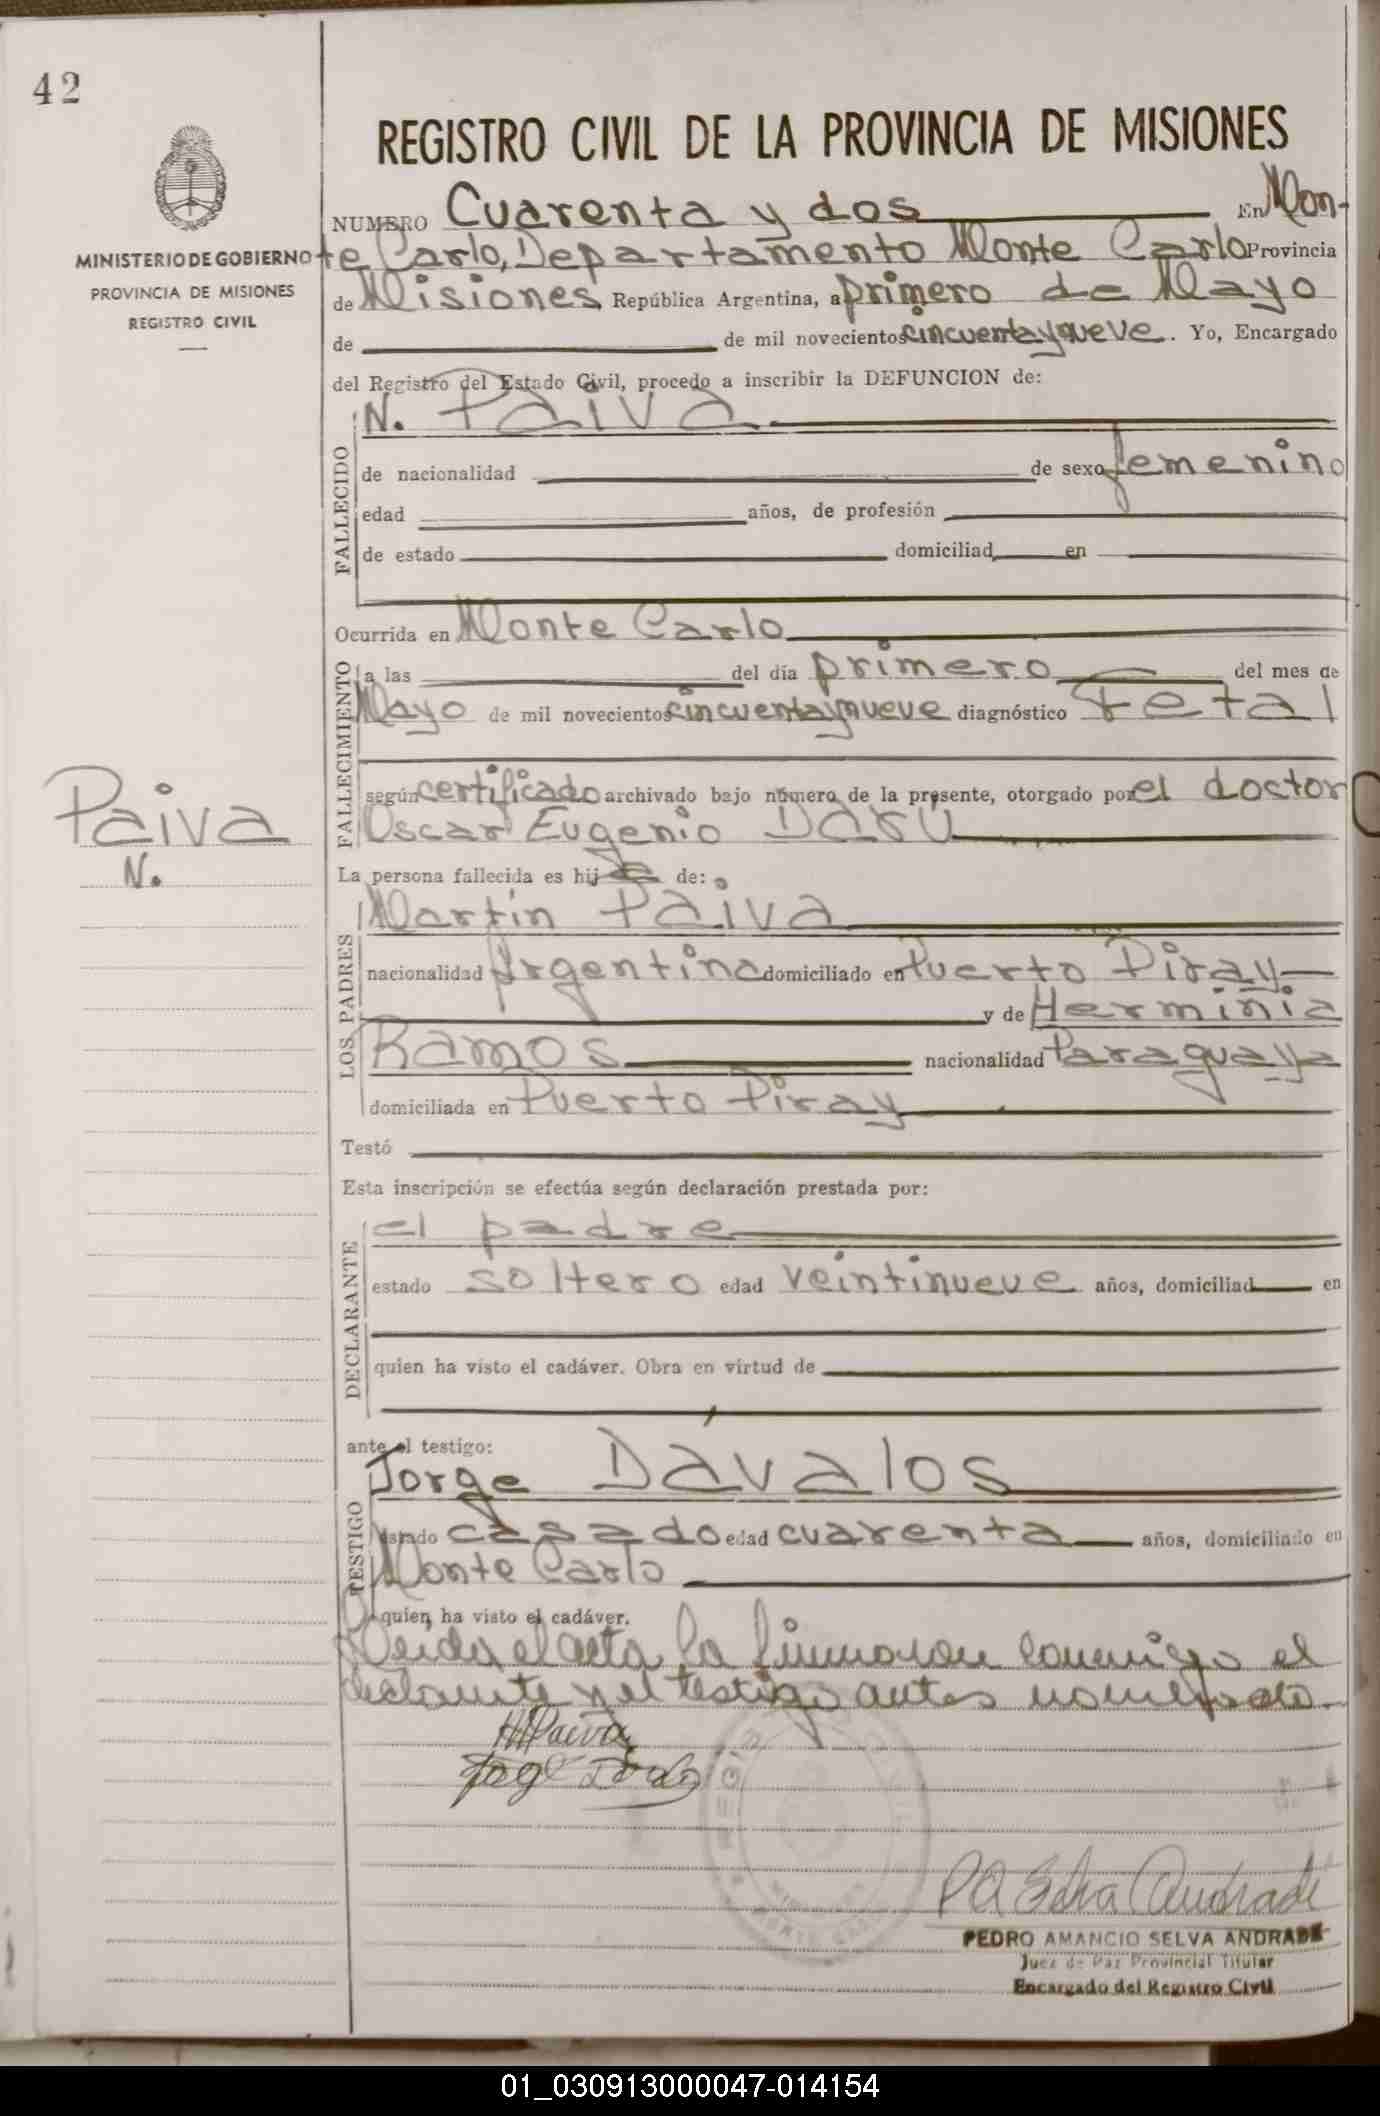 42
REGISTRO CIVIL DE LA PROVINCIA DE MISIONES
MINISTERIO DE GOBIERNO
PROVINCIA DE MISIONES
REGISTRO CIVIL
NUMERO Cuarenta y dos En Mon-
te Carlo, Departamento Monte Carlo Provincia
de Misiones República Argentina, a primero de Mayo
de de mil novecientos cincuenta y nueve. Yo, Encargado
del Registro del Estado Civil, procedo a inscribir la DEFUNCION de:
N. Paiva
FALLECIDO
de nacionalidad de sexo femenino
edad años, de profesión
de estado domiciliad en
Ocurrida en Monte Carlo
FALLECIMIENTO
a las del día primero del mes de
Mayo de mil novecientos cincuenta y nueve diagnóstico Fetal
según certificado archivado bajo número de la presente, otorgado por el doctor
Oscar Eugenio Darú
Paiva
N.
La persona fallecida es hija de:
Martín Paiva
LOS PADRES
nacionalidad Argentina domiciliado en Puerto Piray
y de Herminia
Ramos nacionalidad Paraguaya
domiciliada en Puerto Piray
Testó
Esta inscripción se efectúa según declaración prestada por:
el padre
DECLARANTE
estado soltero edad veintinueve años, domiciliad en
quien ha visto el cadáver. Obra en virtud de
ante el testigo:
Jorge Dávalos
TESTIGO
estado casado edad cuarenta años, domiciliado en
Monte Carlo
quien ha visto el cadáver.
Leida el acta la firmaron conmigo el
declarante y el testigo antes nombrado.
PEDRO AMANCIO SELVA ANDRADE
Juez de Paz Provincial Titular
Encargado del Registro Civil
01_030913000047-014154